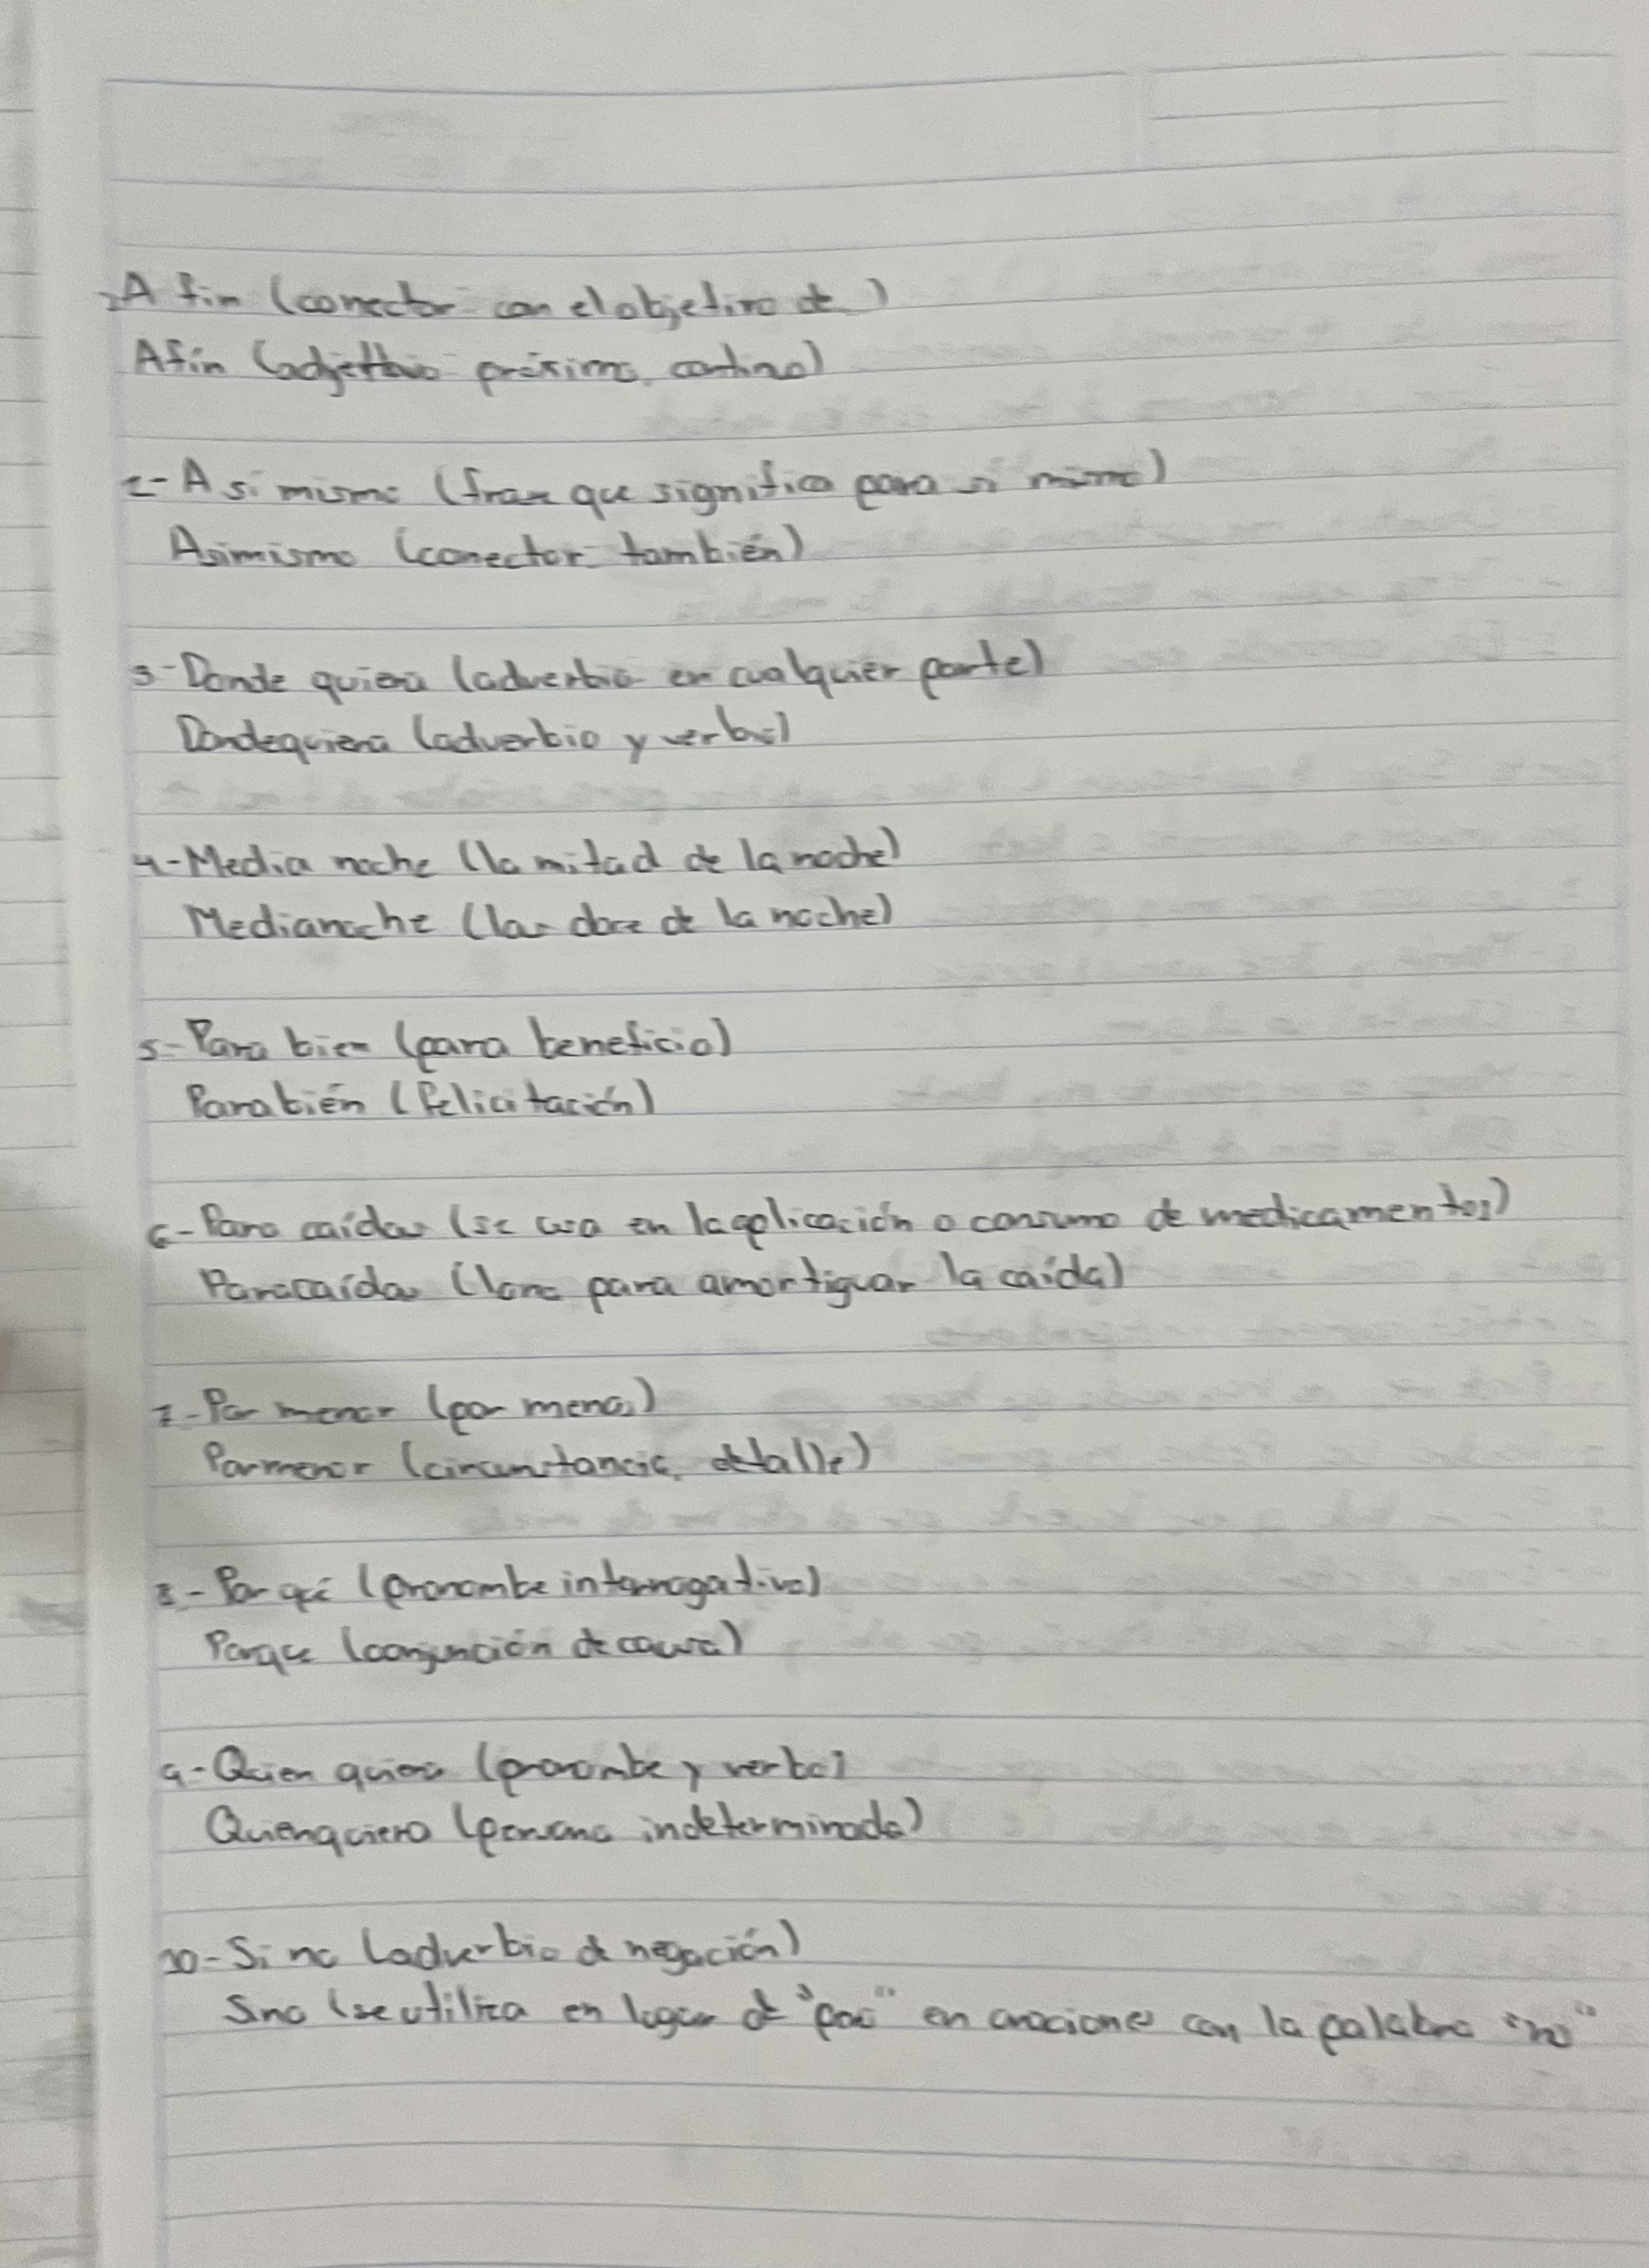 A fin (conector - con el objetivo de)
Afín (adjetivo - próximo, contino)
2- A sí mismo (frase que significa para si mismo)
Asimismo (conector - también)
3- Donde quiera (adverbio - en cualquier parte)
Dondequiera (adverbio y verbo)
4- Media noche (la mitad de la noche)
Medianoche (las doce de la noche)
5- Para bien (para beneficio)
Parabién (felicitación)
6- Para caídas (se usa en la aplicación o consumo de medicamentos)
Paracaídas (lona para amortiguar la caída)
7- Por menor (por menos)
Pormenor (circunstancia, detalle)
8- Por qué (pronombe interrogativo)
Porque (conjunción de causa)
9- Quien quiera (pronombe y verbo)
Quienquiera (persona indeterminada)
10- Si no (adverbio de negación)
Sino (se utiliza en lugar de "pero" en oraciones con la palabra "no"